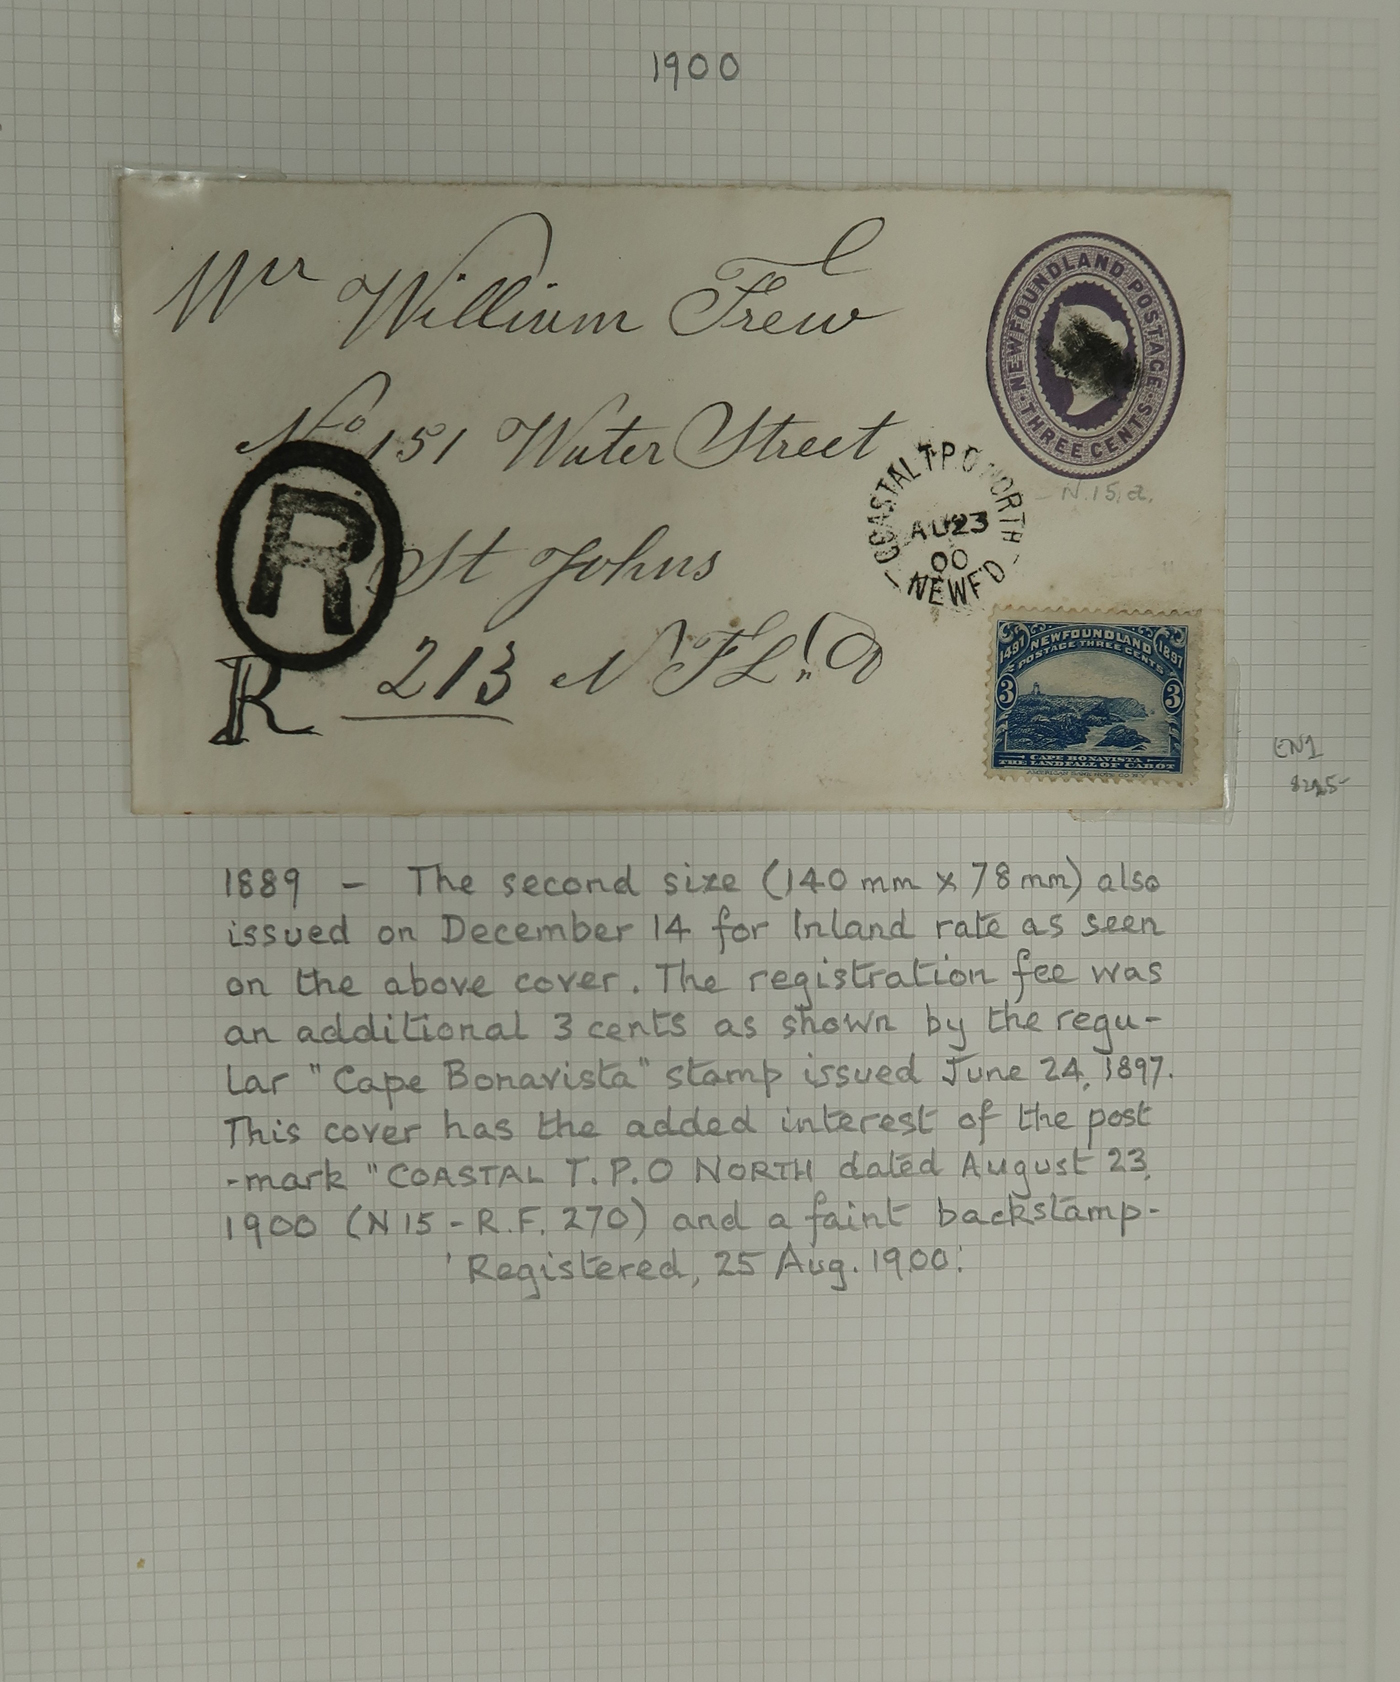 1900
Mr William Frew
No 151 Water Street
St Johns
213 NFL,,D
R
R
NEWFOUNDLAND POSTAGE
THREE CENTS
N.15.a.
COASTAL T.P.O NORTH
AU 23
00
NEWF'D
1497 NEWFOUNDLAND 1897
POSTAGE THREE CENTS
3 3
CAPE BONAVISTA
THE LANDFALL OF CABOT
EN1
1889 - The second size (140 mm x 78 mm) also
issued on December 14 for Inland rate as seen
on the above cover. The registration fee was
an additional 3 cents as shown by the regu-
lar "Cape Bonavista" stamp issued June 24, 1897.
This cover has the added interest of the post
-mark "COASTAL T.P.O NORTH dated August 23,
1900 (N15 - R.F. 270) and a faint backstamp-
'Registered, 25 Aug. 1900.'